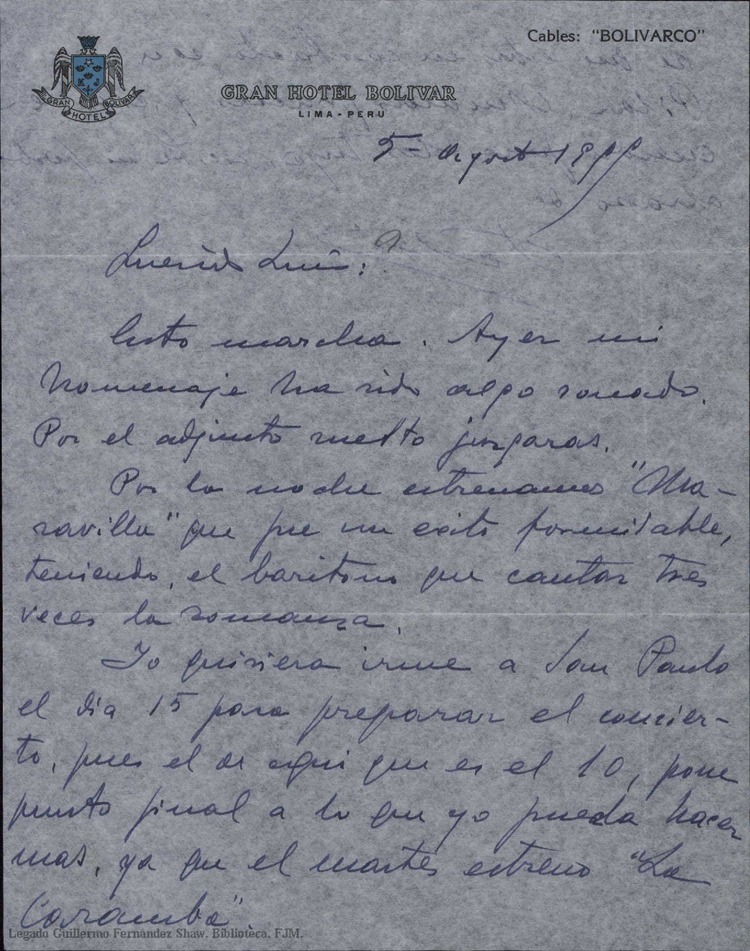 Cables: "BOLIVARCO"
GRAN HOTEL BOLIVAR
GRAN HOTEL BOLIVAR
LIMA - PERU
5 - Agosto 1955
Querido Luis:
Esto marcha. Ayer mi
homenaje ha sido algo sonado.
Por el adjunto suelto juzgaras.
Por la noche estrenamos "Ma-
ravilla" que fue un exito formidable,
teniendo, el baritono que cantar tres
veces la romanza.
Yo quisiera irme a Sau Paulo
el dia 15 para preparar el concier-
to, pues el de aqui que es el 10, pone
punto final a lo que yo pueda hacer
mas, ya que el martes estreno "La
Caramba".
Legado Guillermo Fernández Shaw. Biblioteca. FJM.